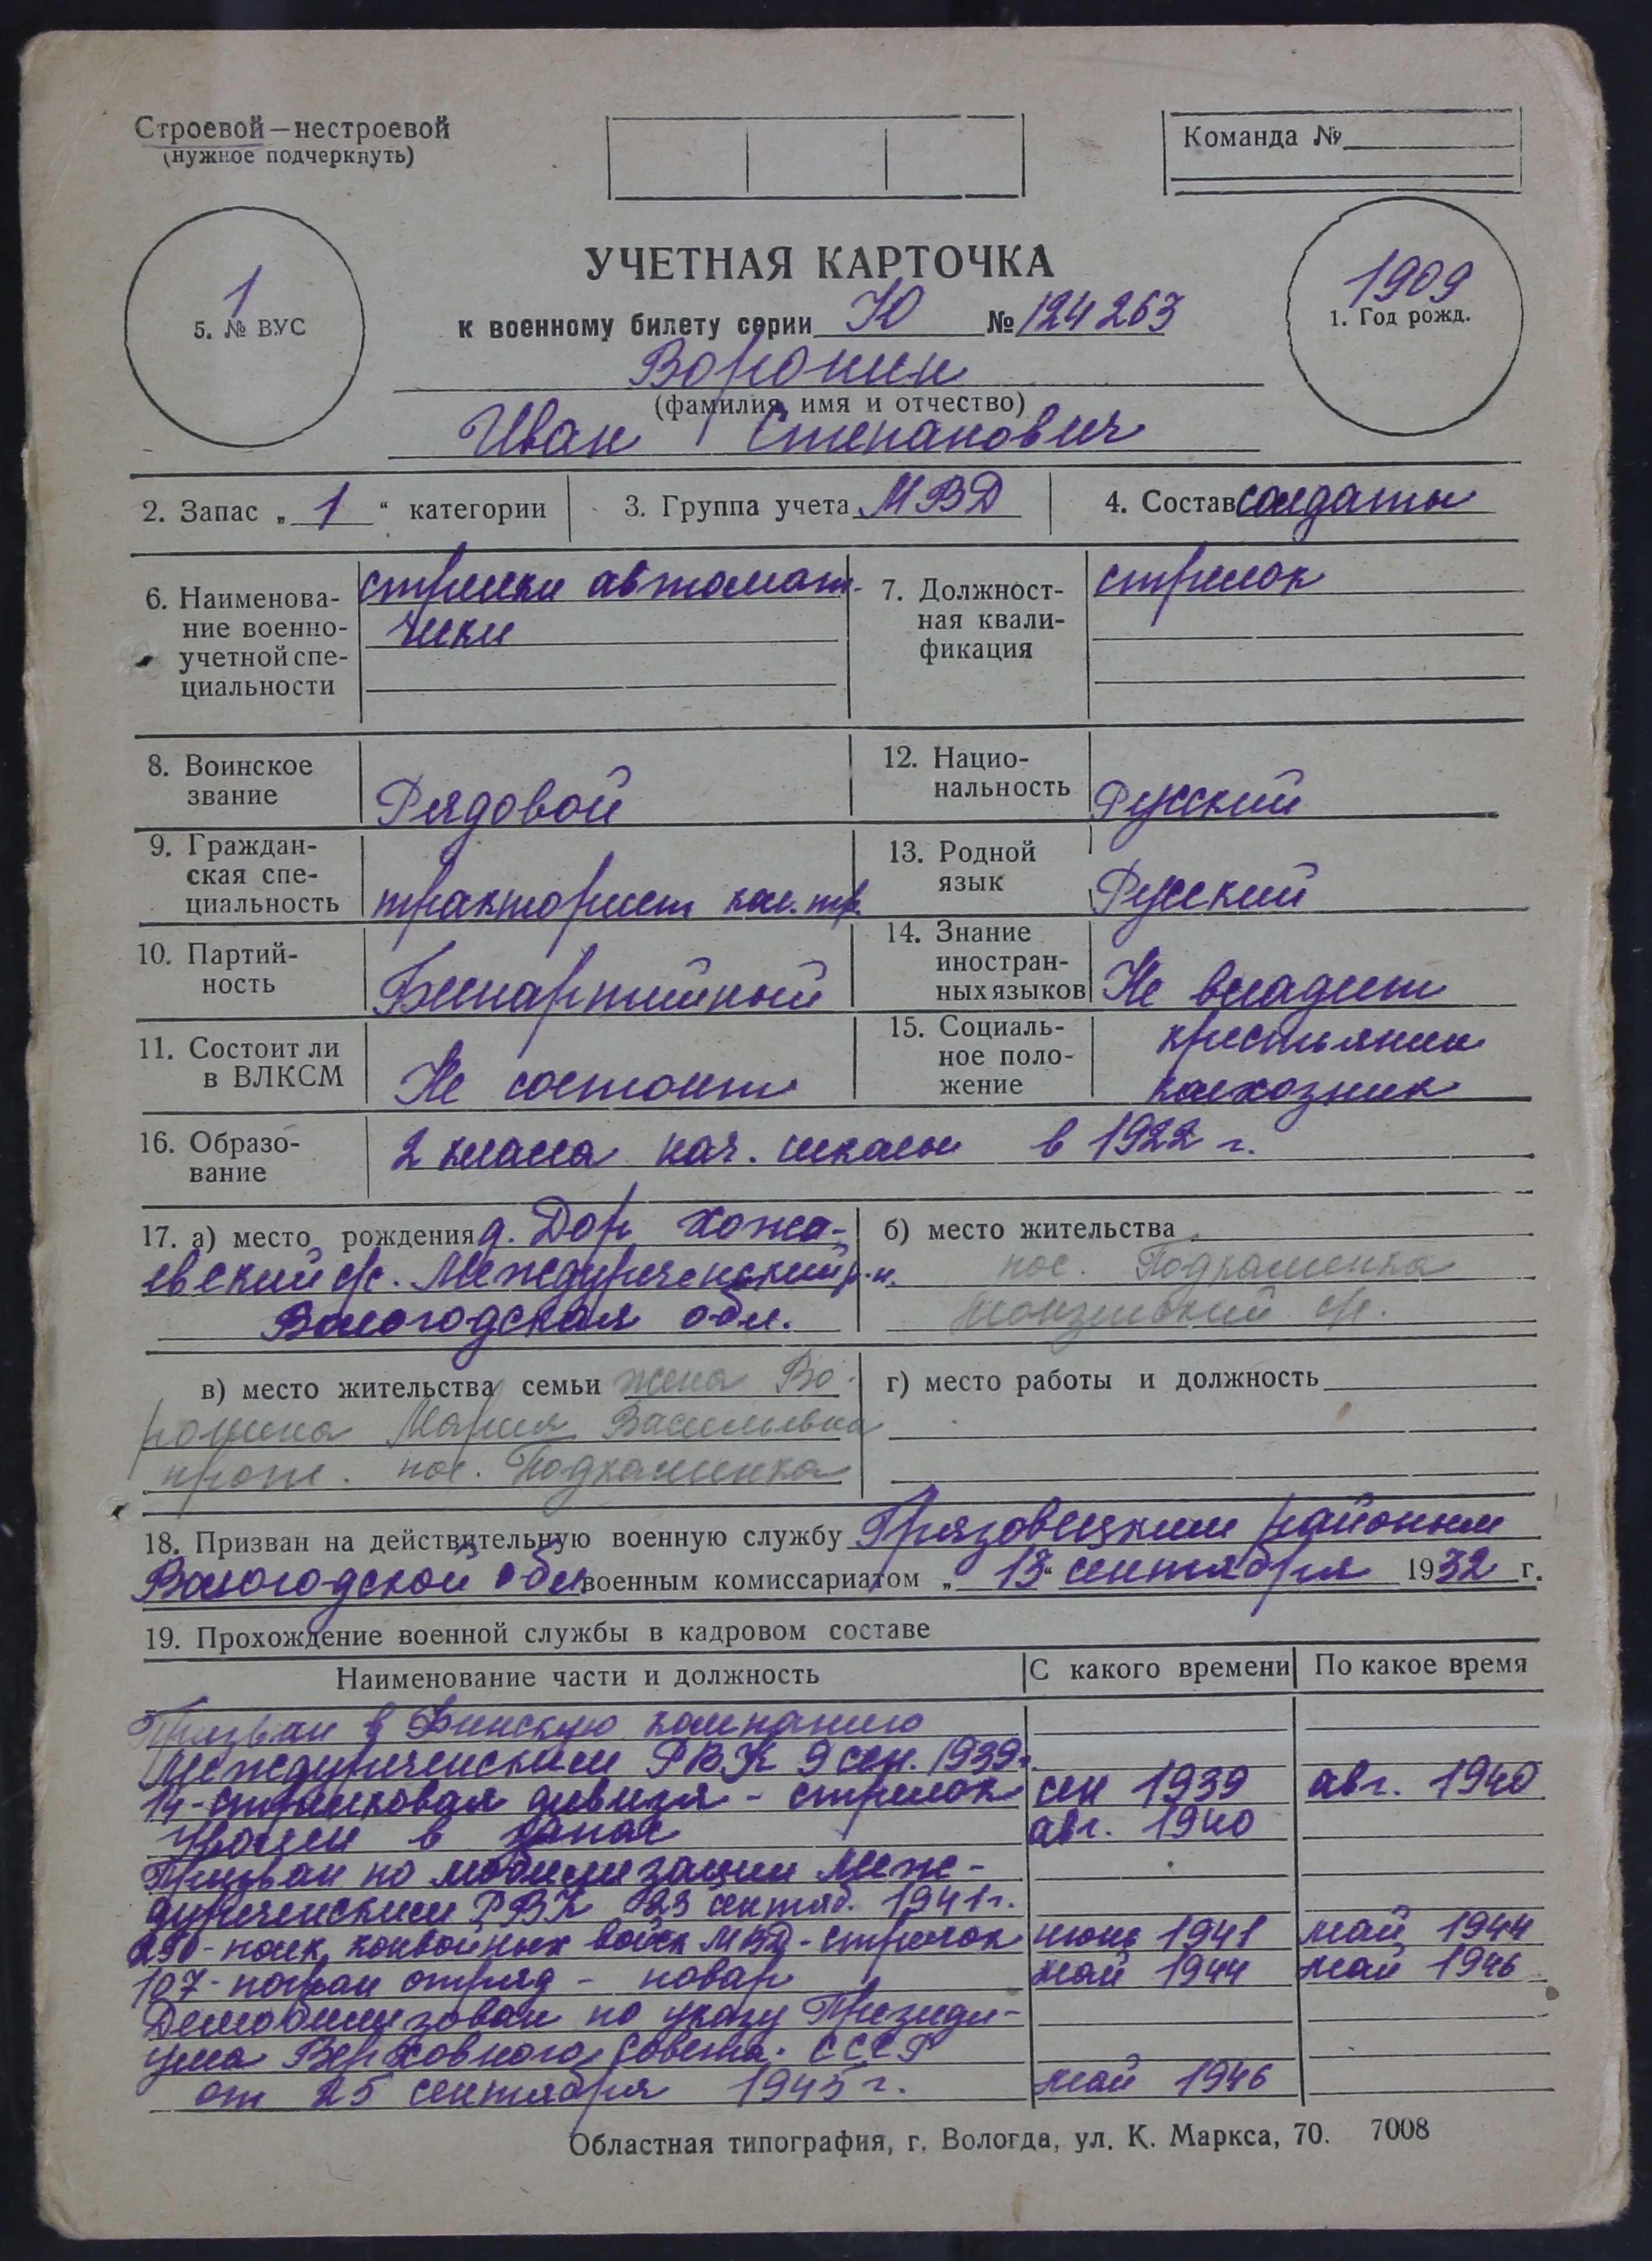 Строевой — нестроевой
(нужное подчеркнуть)
Команда №
1
5. № ВУС
УЧЕТНАЯ КАРТОЧКА
к военному билету серии Ю № 124263
1909
1. Год рожд.
Воронин
(фамилия, имя и отчество)
Иван Степанович
2. Запас „ 1 “ категории
3. Группа учета МВД
4. Состав солдаты
6. Наименова-
ние военно-
учетной спе-
циальности
стрелки автомат-
чики
7. Должност-
ная квали-
фикация
стрелок
8. Воинское
звание
Рядовой
12. Нацио-
нальность
Русский
9. Граждан-
ская спе-
циальность
тракторист кол. тр.
13. Родной
язык
Русский
10. Партий-
ность
Беспартийный
14. Знание
иностран-
ных языков
Не владеет
11. Состоит ли
в ВЛКСМ
Не состоит
15. Социаль-
ное поло-
жение
крестьянин
колхозник
16. Образо-
вание
2 класса нач. школы в 1922 г.
17. а) место рождения д. Дор Хожа-
евский с/с. Междуреченский р-н.
Вологодская обл.
б) место жительства
пос. Подкаменка
с/с.
в) место жительства семьи жена Во-
ронина Мария Васильевна
прож. пос. Подкаменка
г) место работы и должность
18. Призван на действительную военную службу Грязовецким районным
Вологодской обл военным комиссариатом „ 13 “ сентября 1932 г.
19. Прохождение военной службы в кадровом составе
Наименование части и должность С какого времени По какое время
Призван в Финскую компанию
Междуреченским РВК 9 сен. 1939г.
14-стрелковая дивизя - стрелок сен 1939 авг. 1940
Уволен в запас авг. 1940
Призван по мобилизации Меж-
дуреченским РВК 23 сентяб. 1941г.
250-полк конвойных войск МВД - стрелок июнь 1941 май 1944
107-погран отряд - повар май 1944 май 1946
Демобилизован по указу Президи-
ума Верховного Совета СССР
от 25 сентября 1945 г. май 1946
Областная типография, г. Вологда, ул. К. Маркса, 70. 7008